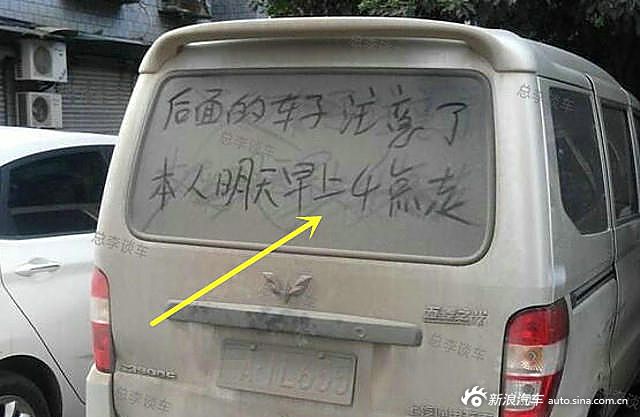 总李谈车
后面的车子注意了
总李谈车
总李谈车
本人明天早上4点走
总李谈车
总李谈车
五菱之光
总李谈车
新浪汽车 auto.sina.com.cn